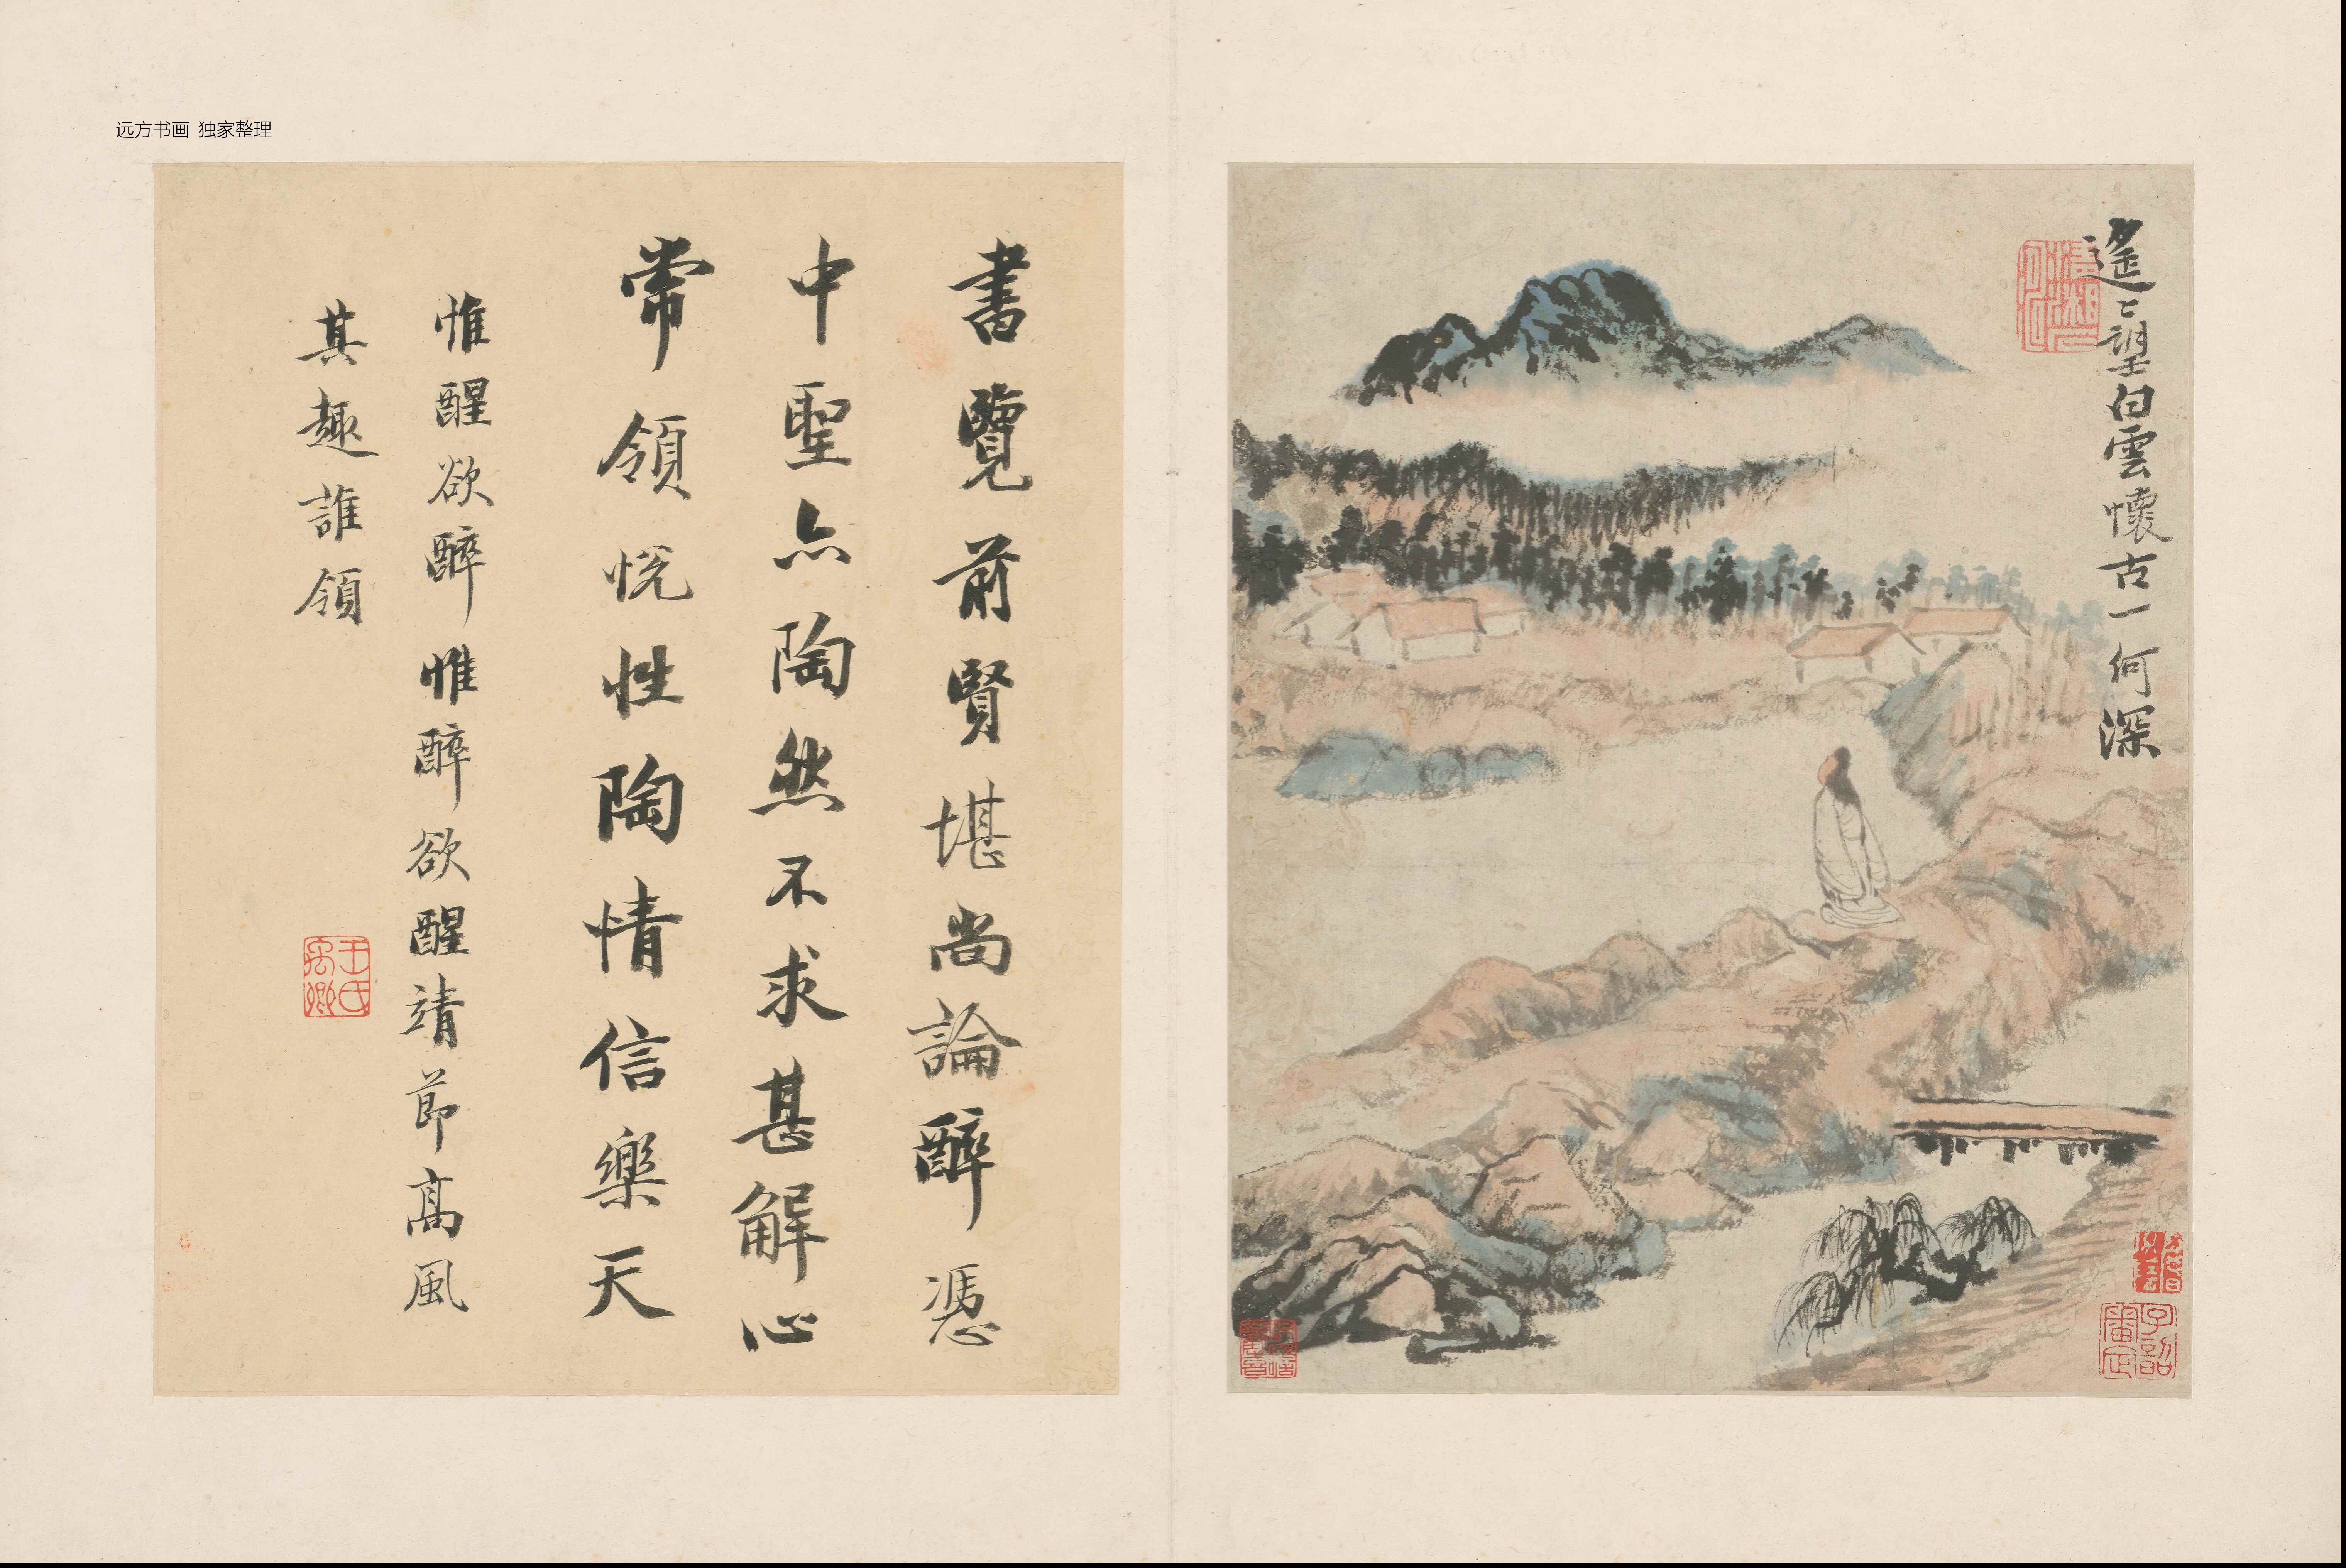 远方书画-独家整理
遙〻望白雲懷古一何深
書覽前賢堪尚論醉憑
中聖亦陶然不求甚解心
常領恍性陶情信樂天
惟醒欲醉惟醉欲醒靖節高風
其趣誰領
王氏
子貽